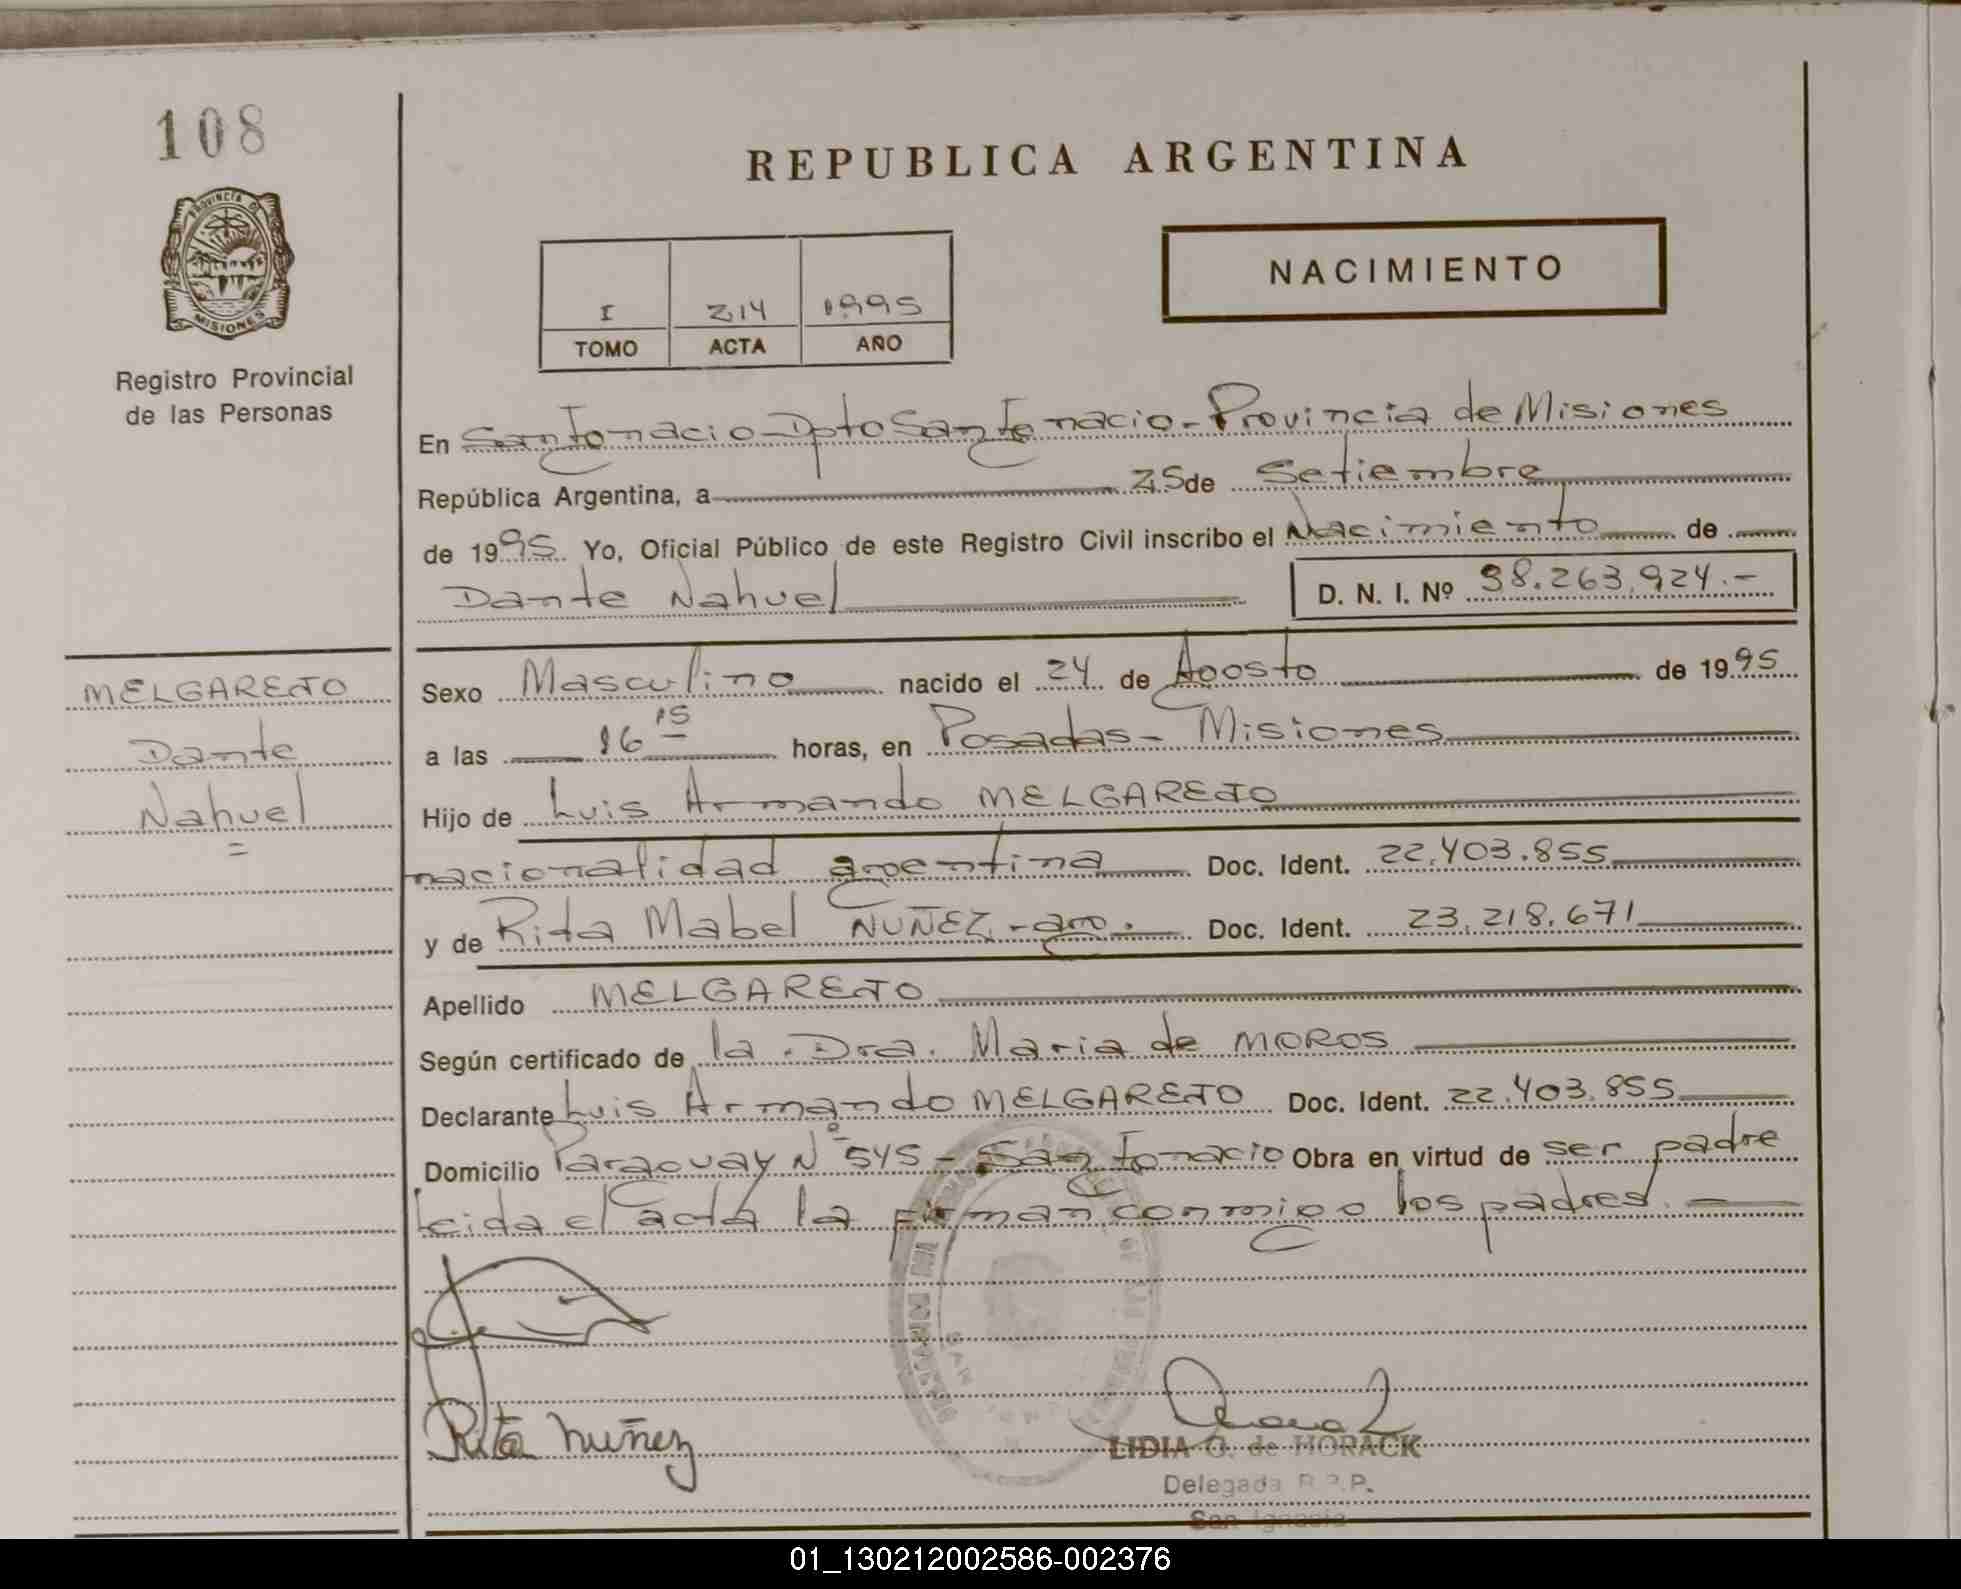 108
REPUBLICA ARGENTINA
PROVINCIA DE
MISIONES
NACIMIENTO
I 214 1995
TOMO ACTA AÑO
Registro Provincial
de las Personas
En San Ignacio - Dpto San Ignacio - Provincia de Misiones
República Argentina, a 25 de Setiembre
de 1995. Yo, Oficial Público de este Registro Civil inscribo el Nacimiento de
Dante Nahuel D. N. I. Nº 38.263.924.-
MELGAREJO
Dante
Nahuel
Sexo Masculino nacido el 24 de Agosto de 1995
a las 16 15 horas, en Posadas - Misiones
Hijo de Luis Armando MELGAREJO
nacionalidad argentina Doc. Ident. 22.403.855
y de Rita Mabel NUÑEZ - arg. Doc. Ident. 23.218.671
Apellido MELGAREJO
Según certificado de la Dra. Maria de MOROS
Declarante Luis Armando MELGAREJO Doc. Ident. 22.403.855
Domicilio Paraguay Nº 545 - San Ignacio Obra en virtud de ser padre
Leida el acta la firman conmigo los padres.
Rita Nuñez
LIDIA O. de HORACK
Delegada R.P.P.
San Ignacio
01_130212002586-002376